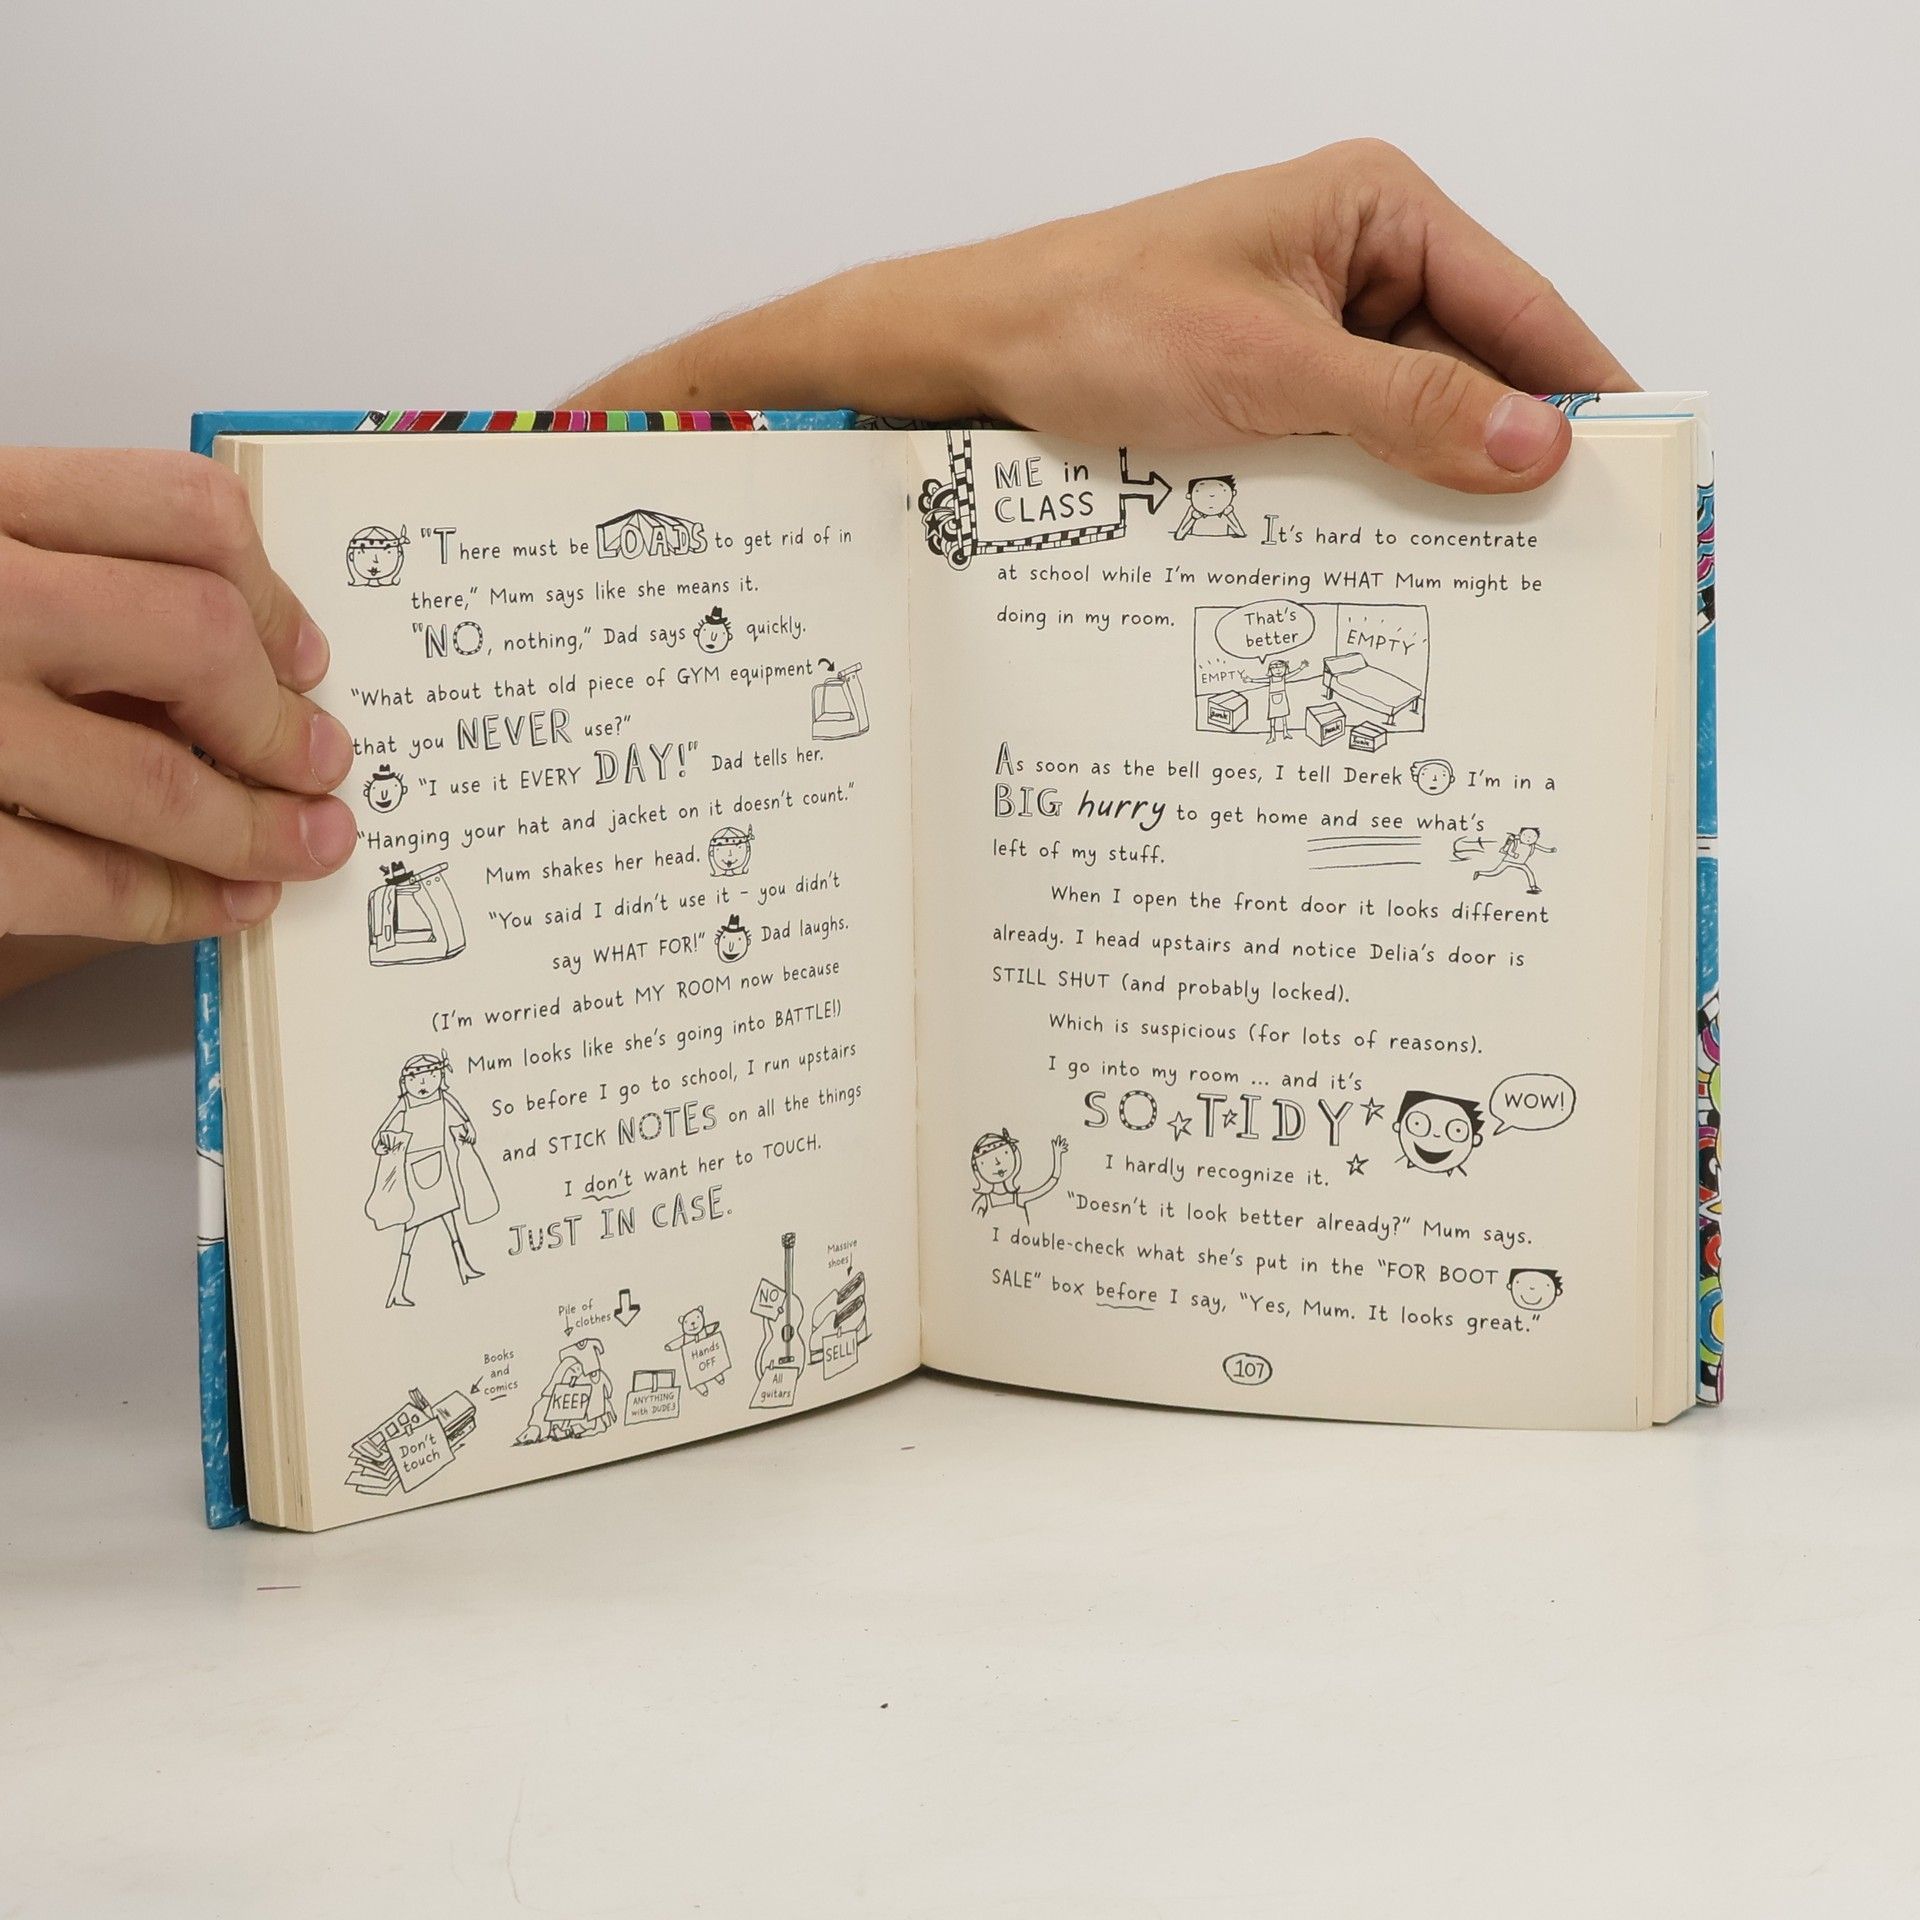 "There must be LOADS to get rid of in
there," Mum says like she means it.
"NO, nothing," Dad says quickly.
"What about that old piece of GYM equipment
that you NEVER use?"
"I use it EVERY DAY!" Dad tells her.
"Hanging your hat and jacket on it doesn't count."
Mum shakes her head.
"You said I didn't use it - you didn't
say WHAT FOR!" Dad laughs.
(I'm worried about MY ROOM now because
Mum looks like she's going into BATTLE!)
So before I go to school, I run upstairs
and STICK NOTES on all the things
I don't want her to TOUCH.
JUST IN CASE.
Books
and
comics
Don't
touch
Pile of
clothes
KEEP
ANYTHING
with DUDE3
Hands
OFF
NO
All
guitars
Massive
shoes
SELL!
ME in
CLASS
It's hard to concentrate
at school while I'm wondering WHAT Mum might be
doing in my room.
That's
better
EMPTY
EMPTY
Junk
Junk
Junk
As soon as the bell goes, I tell Derek I'm in a
BIG hurry to get home and see what's
left of my stuff.
When I open the front door it looks different
already. I head upstairs and notice Delia's door is
STILL SHUT (and probably locked).
Which is suspicious (for lots of reasons).
I go into my room ... and it's
SO TIDY
WOW!
I hardly recognize it.
"Doesn't it look better already?" Mum says.
I double-check what she's put in the "FOR BOOT
SALE" box before I say, "Yes, Mum. It looks great."
107